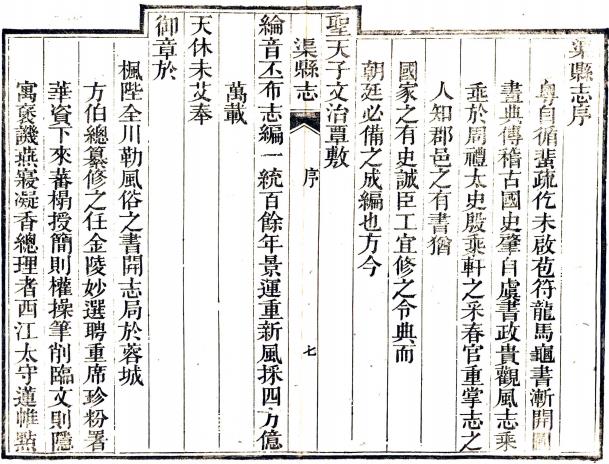 渠縣志序
粵自循蜚疏仡未啟苞符龍馬龜書漸開圖
畫典傳稽古國史肇自虞書政貴觀風志乘
垂於周禮太史殷乘軒之采春官重掌志之
人知郡邑之有書猶
國家之有史誠臣工宜修之令典而
朝廷必備之成編也方今
聖天子文治覃敷
渠縣志 序 七
綸音丕布志編一統百餘年景運重新風採四方億
萬載
天休未艾奉
御章於
楓陛全川勒風俗之書開志局於蓉城
方伯總纂修之任金陵妙選聘重席珍粉署
華資下來蕃榻授簡則權操筆削臨文則隱
寓褒譏燕寢凝香總理者西江太守蓮帷點